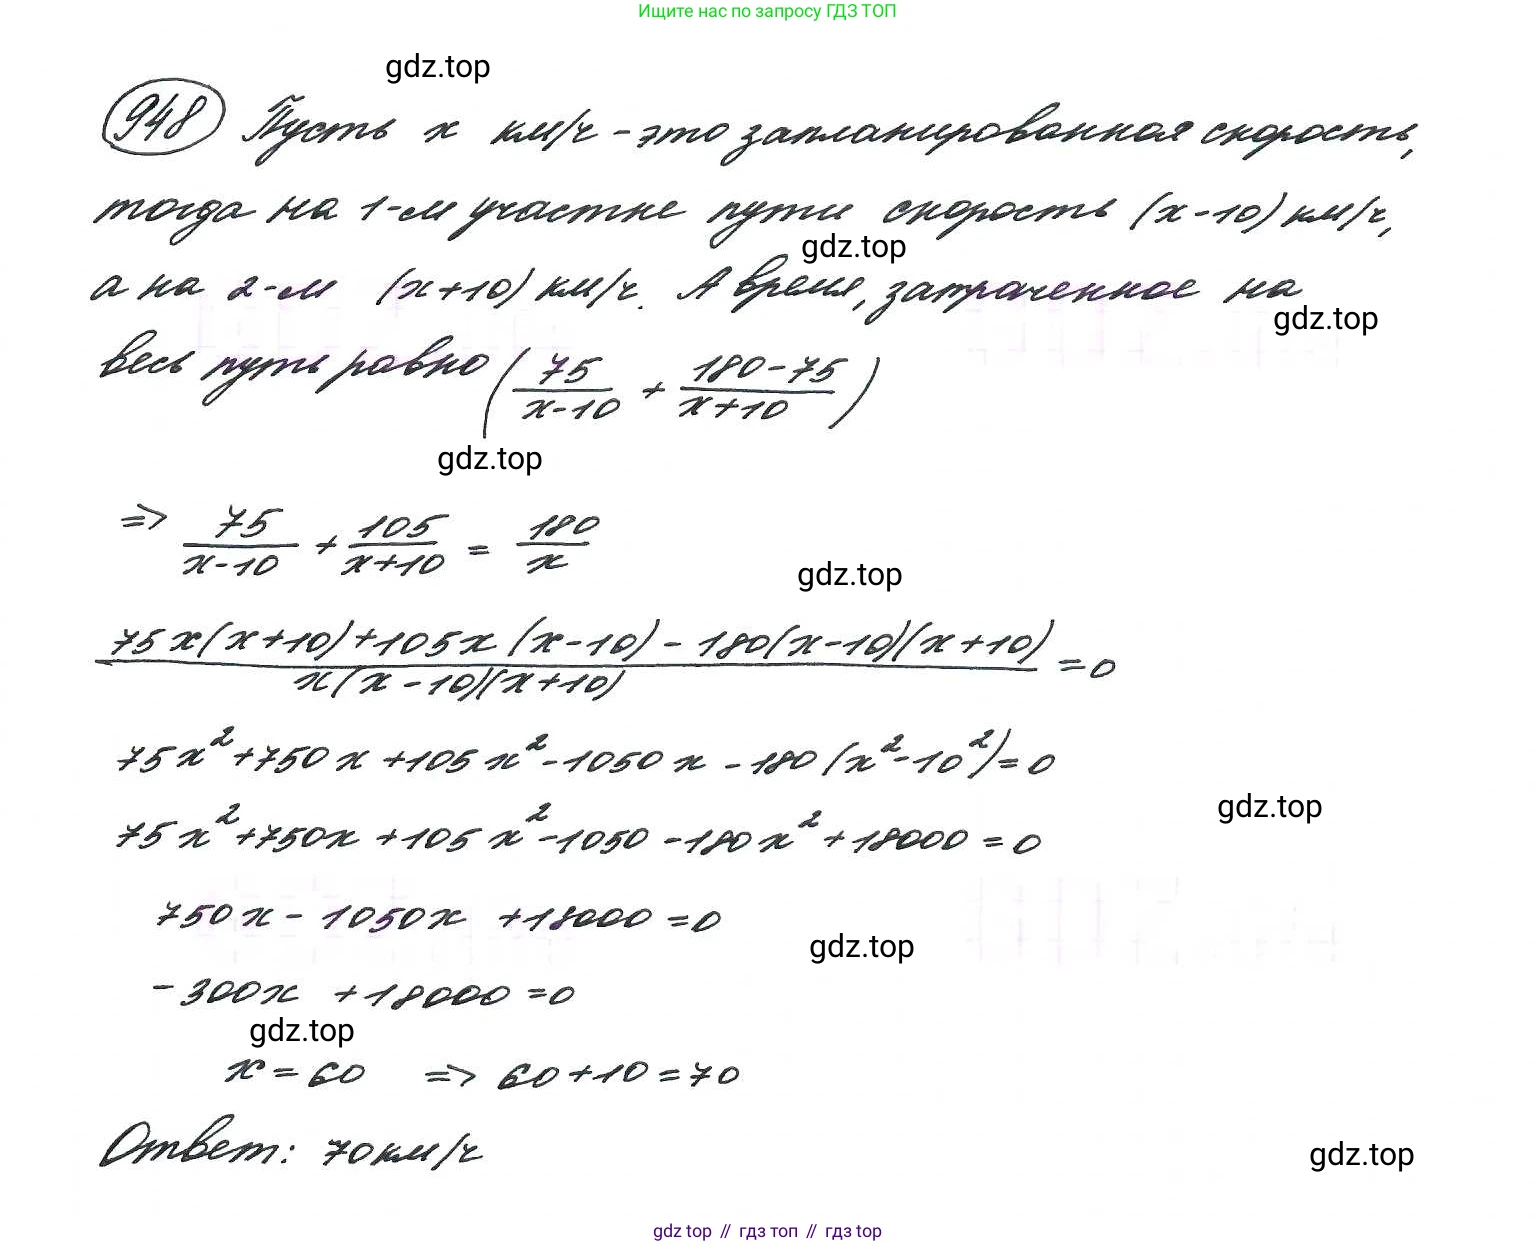 Ищите нас по запросу ГДЗ ТОП
gdz.top
948 Пусть x км/ч - это запланированная скорость,
тогда на 1-м участке пути скорость (x-10) км/ч,
gdz.top
а на 2-м (x+10) км/ч. А время, затраченное на
gdz.top
весь путь равно (75/(x-10) + (180-75)/(x+10))
gdz.top
=> 75/(x-10) + 105/(x+10) = 180/x
gdz.top
(75x(x+10)+105x(x-10)-180(x-10)(x+10))/(x(x-10)(x+10)) = 0
75x²+750x+105x²-1050x-180(x²-10²)=0
gdz.top
75x²+750x+105x²-1050-180x²+18000=0
750x-1050x+18000=0
gdz.top
-300x+18000=0
gdz.top
x=60 => 60+10=70
Ответ: 70км/ч
gdz.top
gdz top // гдз топ // гдз top